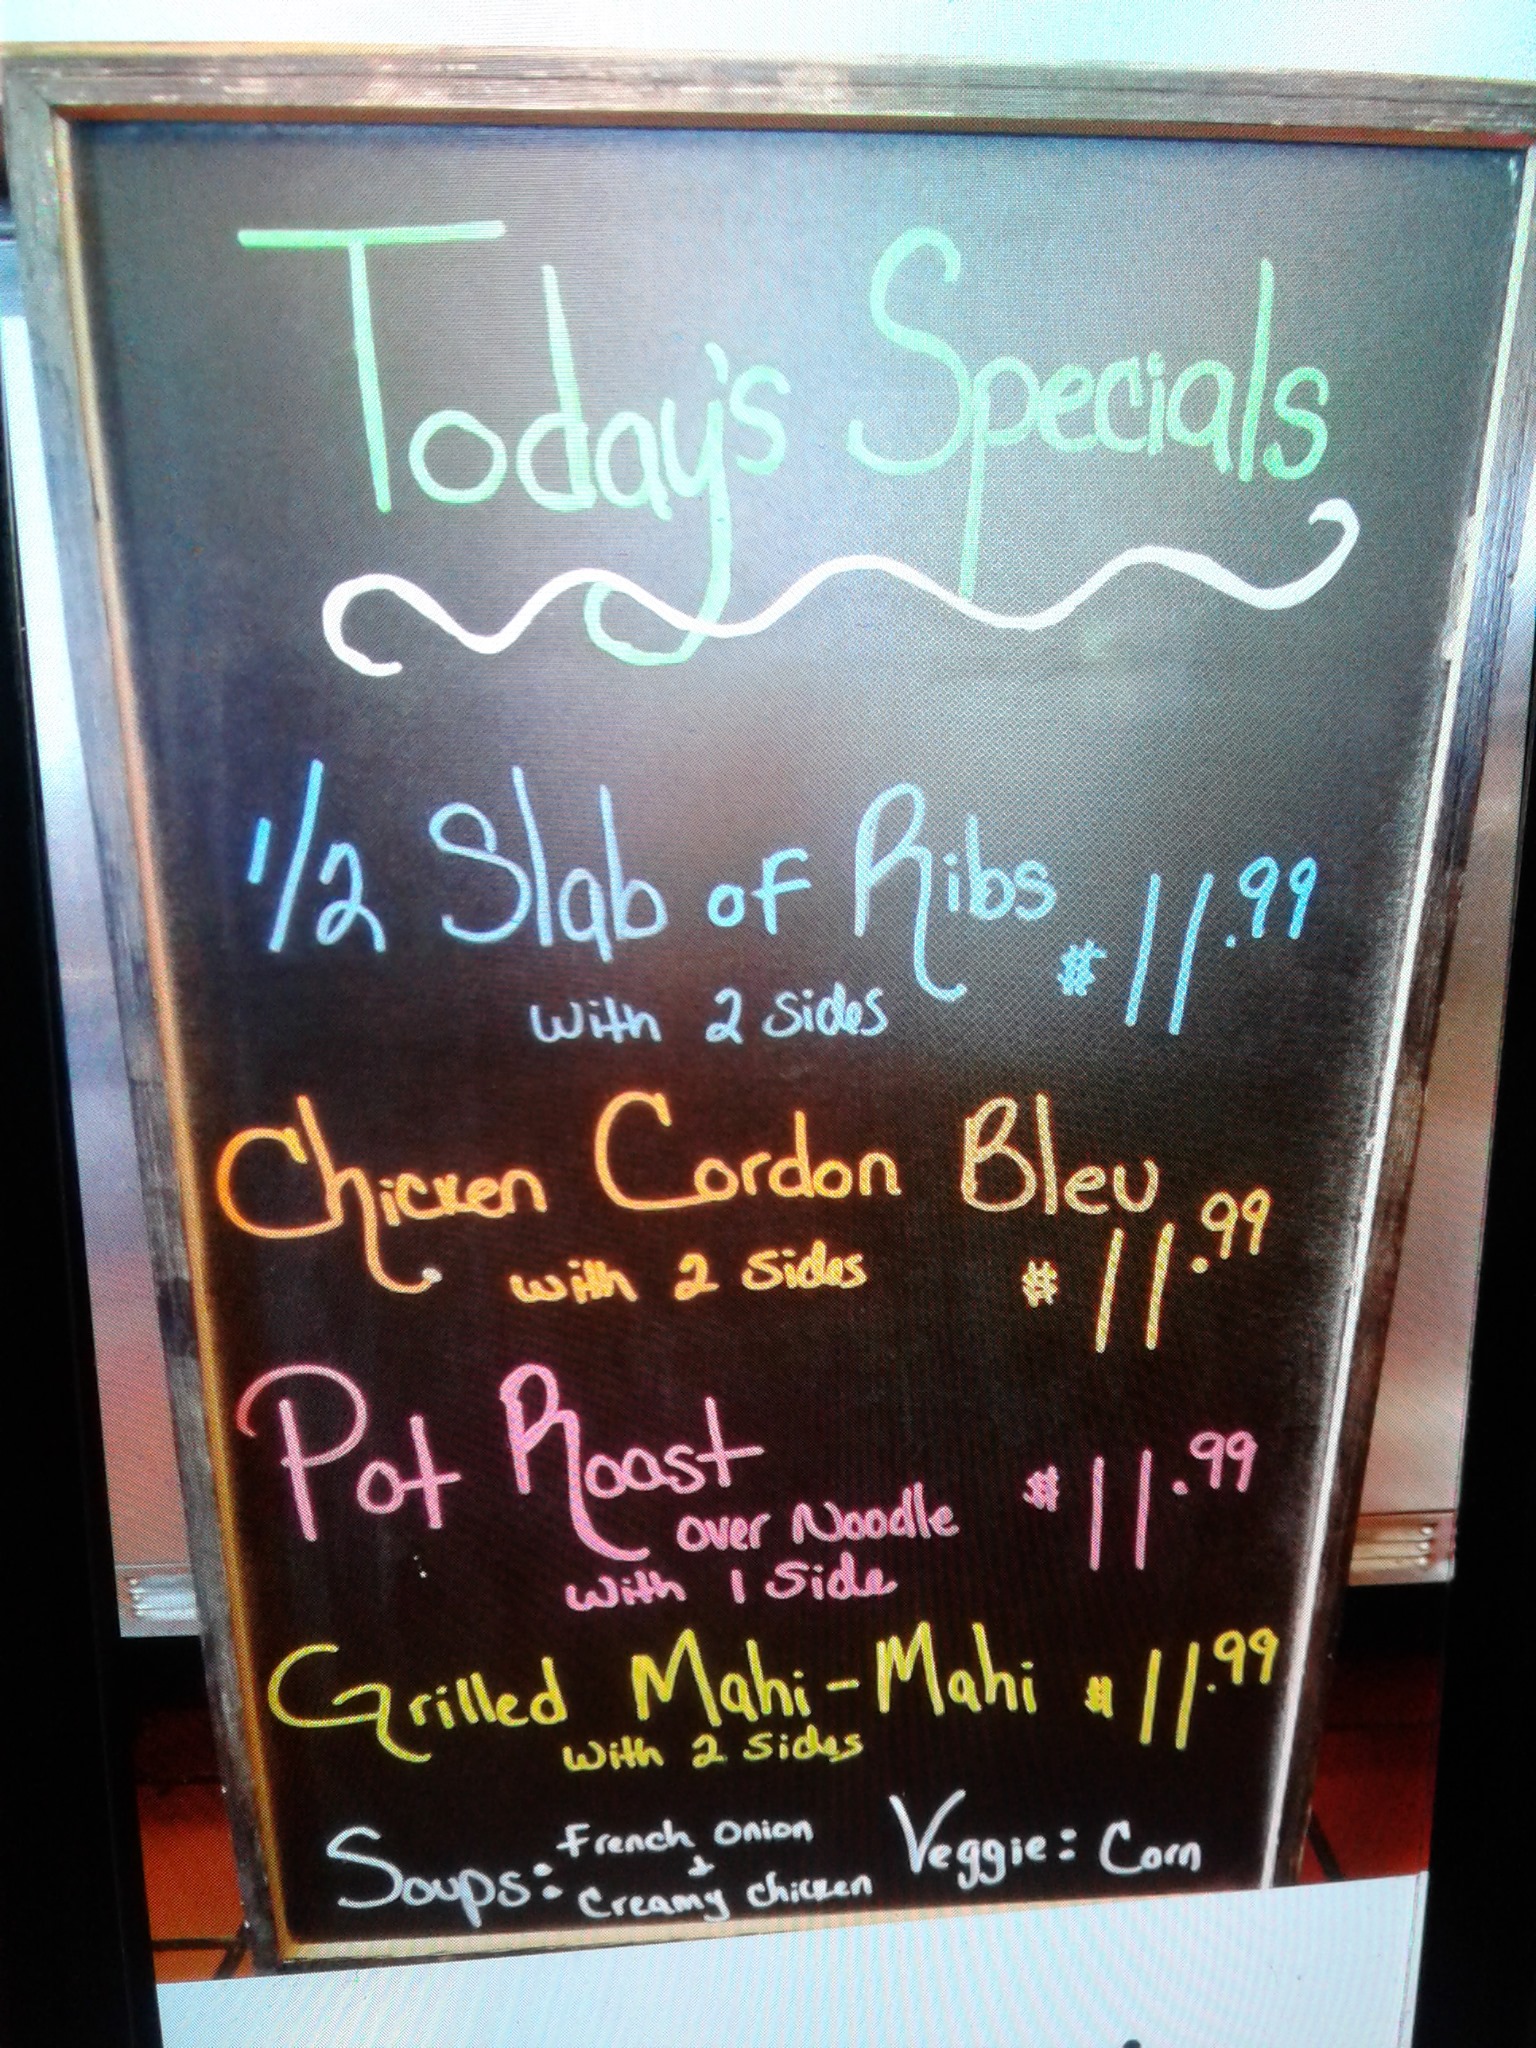 Today's Specials
1/2 Slab of Ribs $11.99
with 2 sides
Chicken Cordon Bleu
with 2 sides $11.99
Pot Roast $11.99
over Noodle
with 1 side
Grilled Mahi-Mahi $11.99
with 2 sides
Soups: French Onion
+
Creamy chicken
Veggie: Corn